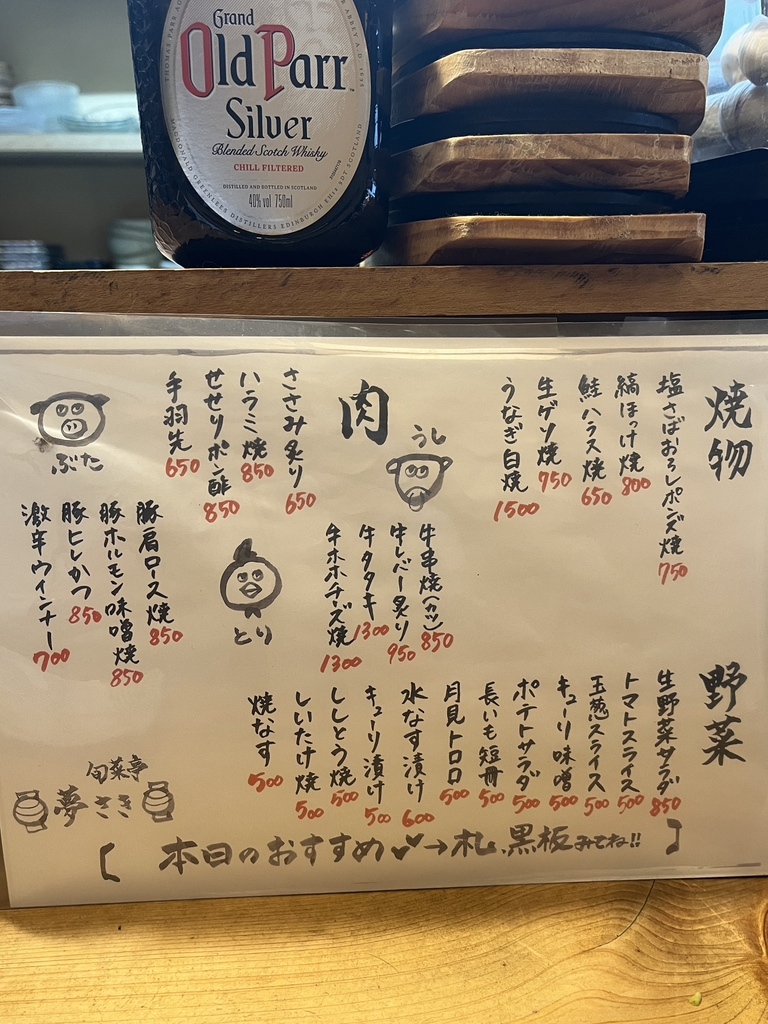 Grand
Old Parr
Silver
Blended Scotch Whisky
CHILL FILTERED
DISTILLED AND BOTTLED IN SCOTLAND
40% vol 750ml
MACDONALD GREENLEES DISTILLERS EDINBURGH EH12 9DT SCOTLAND
焼物
塩さばおろしポンズ焼 750
縞ほっけ焼 800
鮭ハラス焼 650
生ゲソ焼 750
うなぎ白焼 1500
肉
うし
牛串焼(カツ) 850
牛レバー炙り 950
牛タタキ 1300
牛ホホチーズ焼 1300
とり
ささみ炙り 650
ハラミ焼 850
せせりポン酢 850
手羽先 650
ぶた
豚肩ロース焼 850
豚ホルモン味噌焼 850
豚ヒレかつ 850
激辛ウインナー 700
野菜
生野菜サラダ 850
トマトスライス 500
玉葱スライス 500
キューリ味噌 500
ポテトサラダ 500
長いも短冊 500
月見トロロ 500
水なす漬け 600
キューリ漬け 500
ししとう焼 500
しいたけ焼 500
焼なす 500
旬菜亭
夢さき
【本日のおすすめ→札、黒板みてね!!】